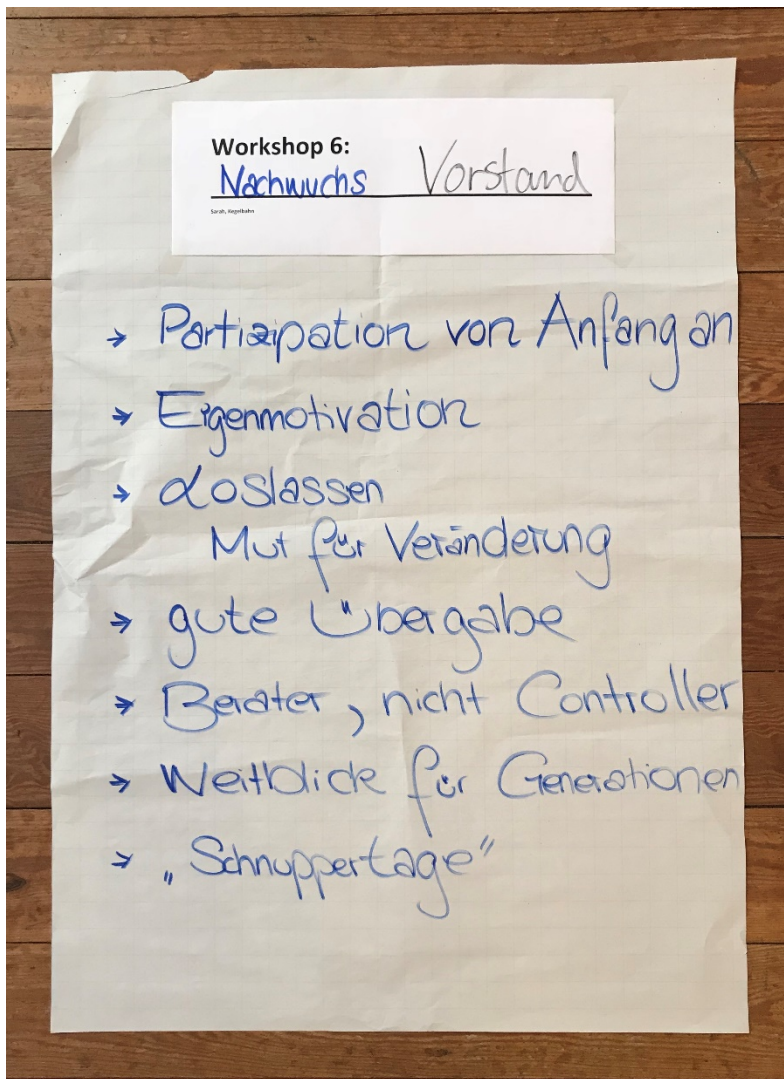 Workshop 6:
Nachwuchs Vorstand
Sarah, Kegelbahn
→ Partizipation von Anfang an
→ Eigenmotivation
→ Loslassen
Mut für Veränderung
→ gute Übergabe
→ Berater, nicht Controller
→ Weitblick für Generationen
→ „Schnuppertage“